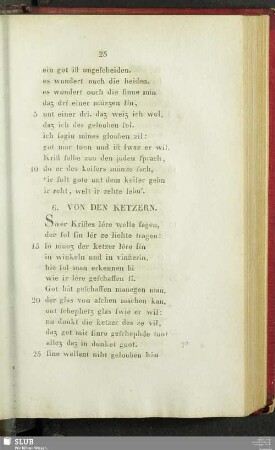 25
ein got ist ungescheiden.
es wundert ouch die heiden.
es wundert ouch die sinne min
daz drî einer mügen sin,
5 unt einer dri. daz weiz ich wol,
daz ich des gelouben sol.
ich sagiu mines glouben zil:
got mac tuon und ist swaz er wil.
Krist solhe zuo den juden sprach,
10 do er des keisers munizen sach,
'ir sult gote unt dem keiser gebn
ir reht, welt ir rehte lebn'.
6. VON DEN KETZERN.
Swer Kristes lére welle sagen,
der sol sin lér ze liehte tragen:
15 so muoz der ketzer lére sin
in winkeln und in vinsterin.
hie sol man erkennen bi
wie ir lére geschaffen si.
Got hât geschaffen manegen man,
20 der glas von aschen machen kan,
unt schepfetz glas swie er wil:
nu dunkt die ketzer des ze vil,
daz got mit siner geschepfde tuot
allez daz in dunket guot.
25 sine wellent niht gelouben hân
SLUB